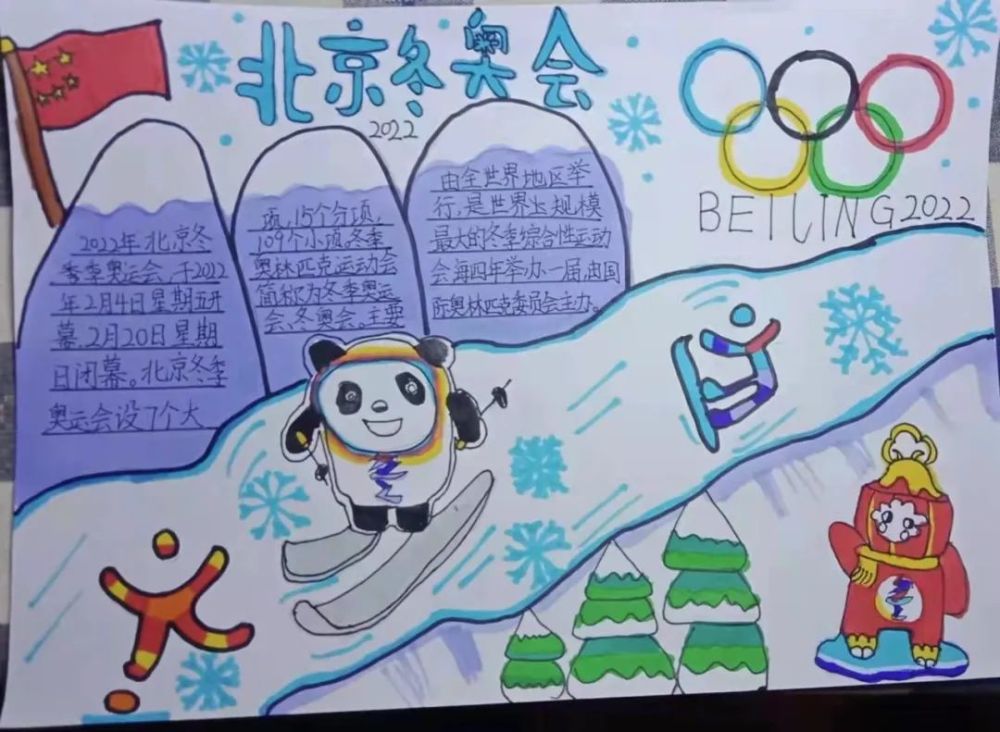 北京冬奥会
2022
BEIJING2022
2022年北京冬
季奥运会,于2022
年2月4日星期五开
幕,2月20日星期
日闭幕。北京冬季
奥运会设7个大
项,15个分项,
109个小项。冬季
奥林匹克运动会
简称为冬季奥运
会、冬奥会。主要
由全世界地区举
行,是世界上规模
最大的冬季综合性运动
会每四年举办一届,由国
际奥林匹克委员会主办。